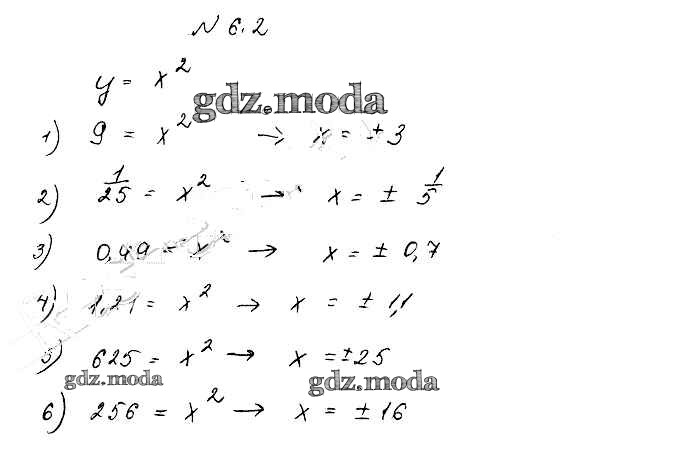 № 6.2
y = x²
gdz.moda
1) 9 = x² → x = ± 3
2) 1/25 = x² → x = ± 1/5
3) 0,49 = x² → x = ± 0,7
4) 1,21 = x² → x = ± 1,1
5) 625 = x² → x = ±25
gdz.moda gdz.moda
6) 256 = x² → x = ±16